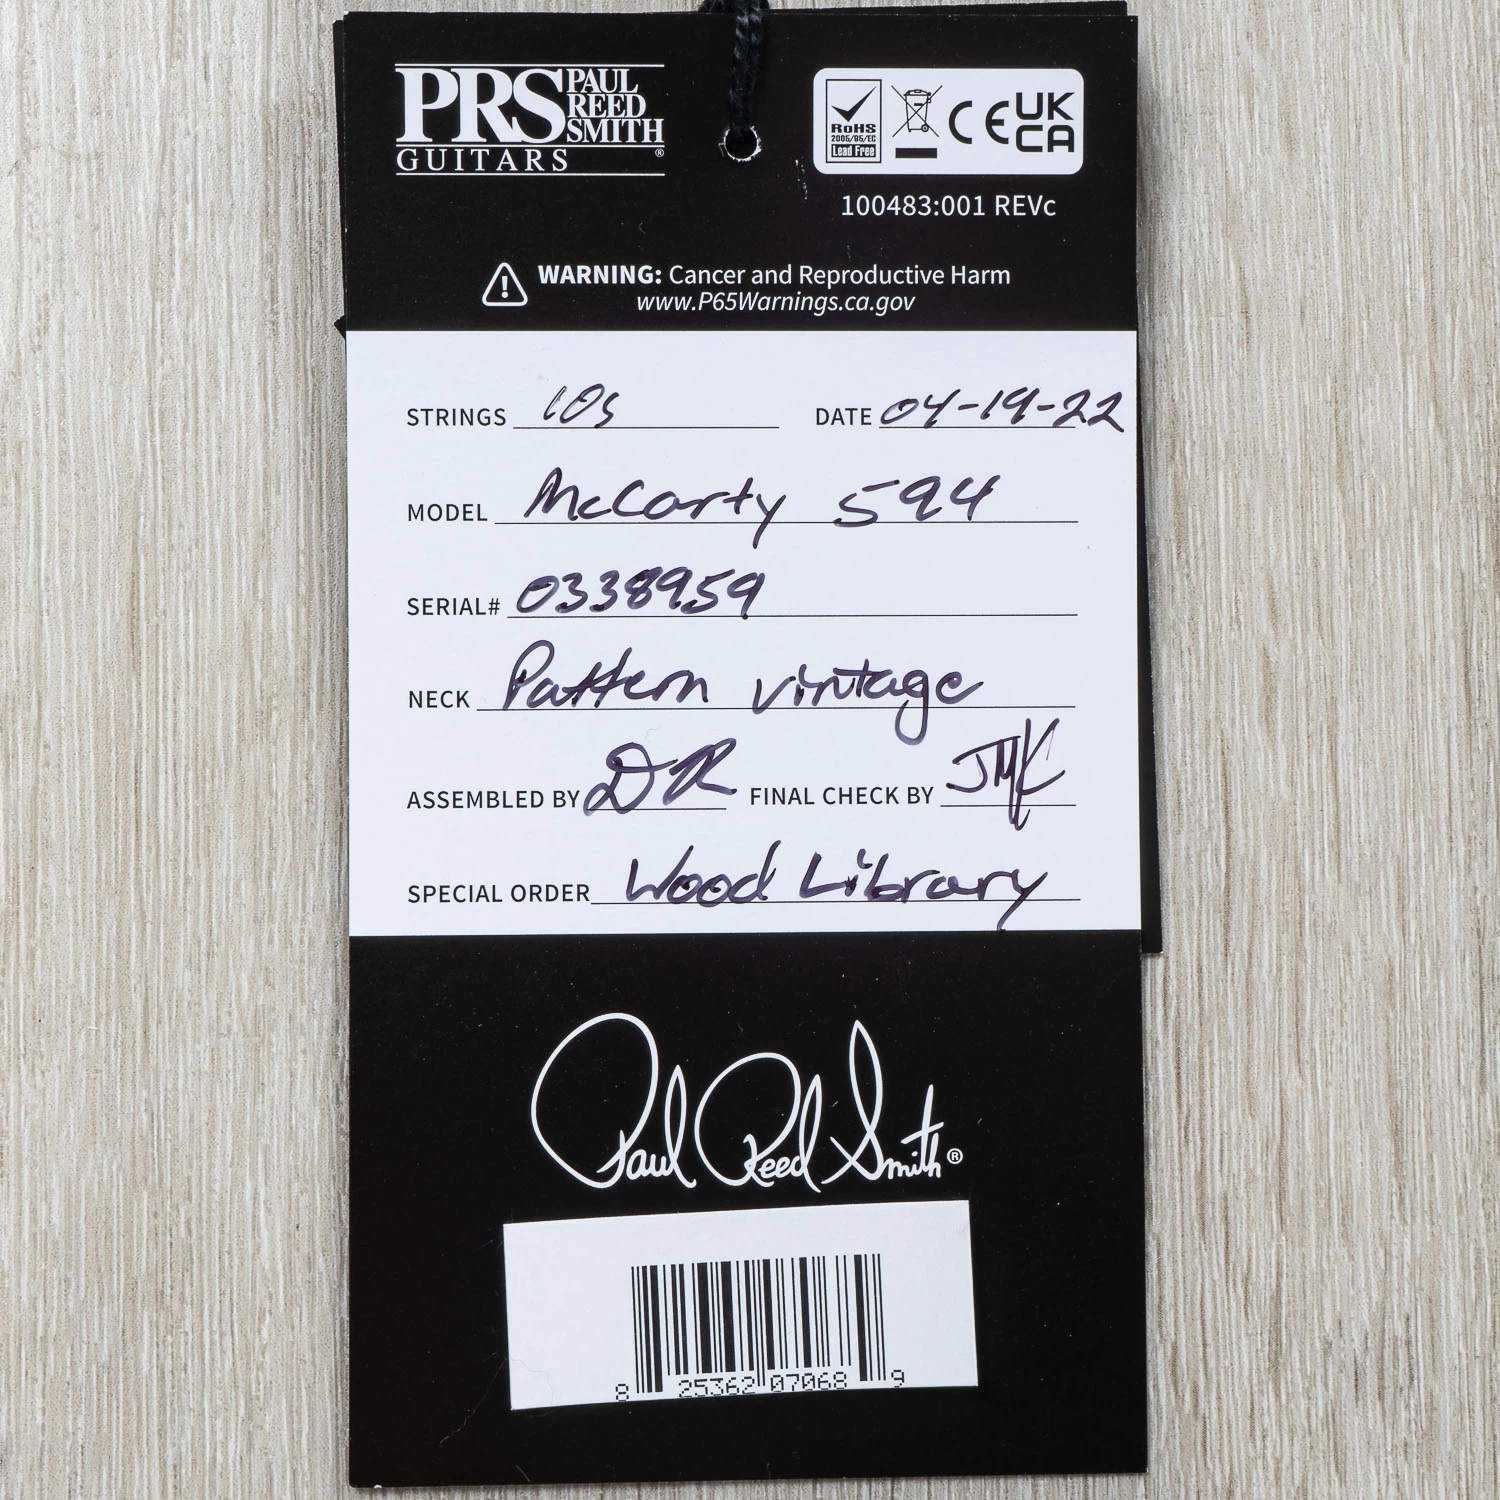 PRS PAUL
REED
SMITH
GUITARS ®
RoHS
2005/95/EC
Lead Free
CE UK
CA
100483:001 REVc
WARNING: Cancer and Reproductive Harm
www.P65Warnings.ca.gov
STRINGS 10s DATE 04-19-22
MODEL McCarty 594
SERIAL# 0338959
NECK Pattern vintage
ASSEMBLED BY DR FINAL CHECK BY JMK
SPECIAL ORDER Wood Library
Paul Reed Smith®
8 25362 07068 9